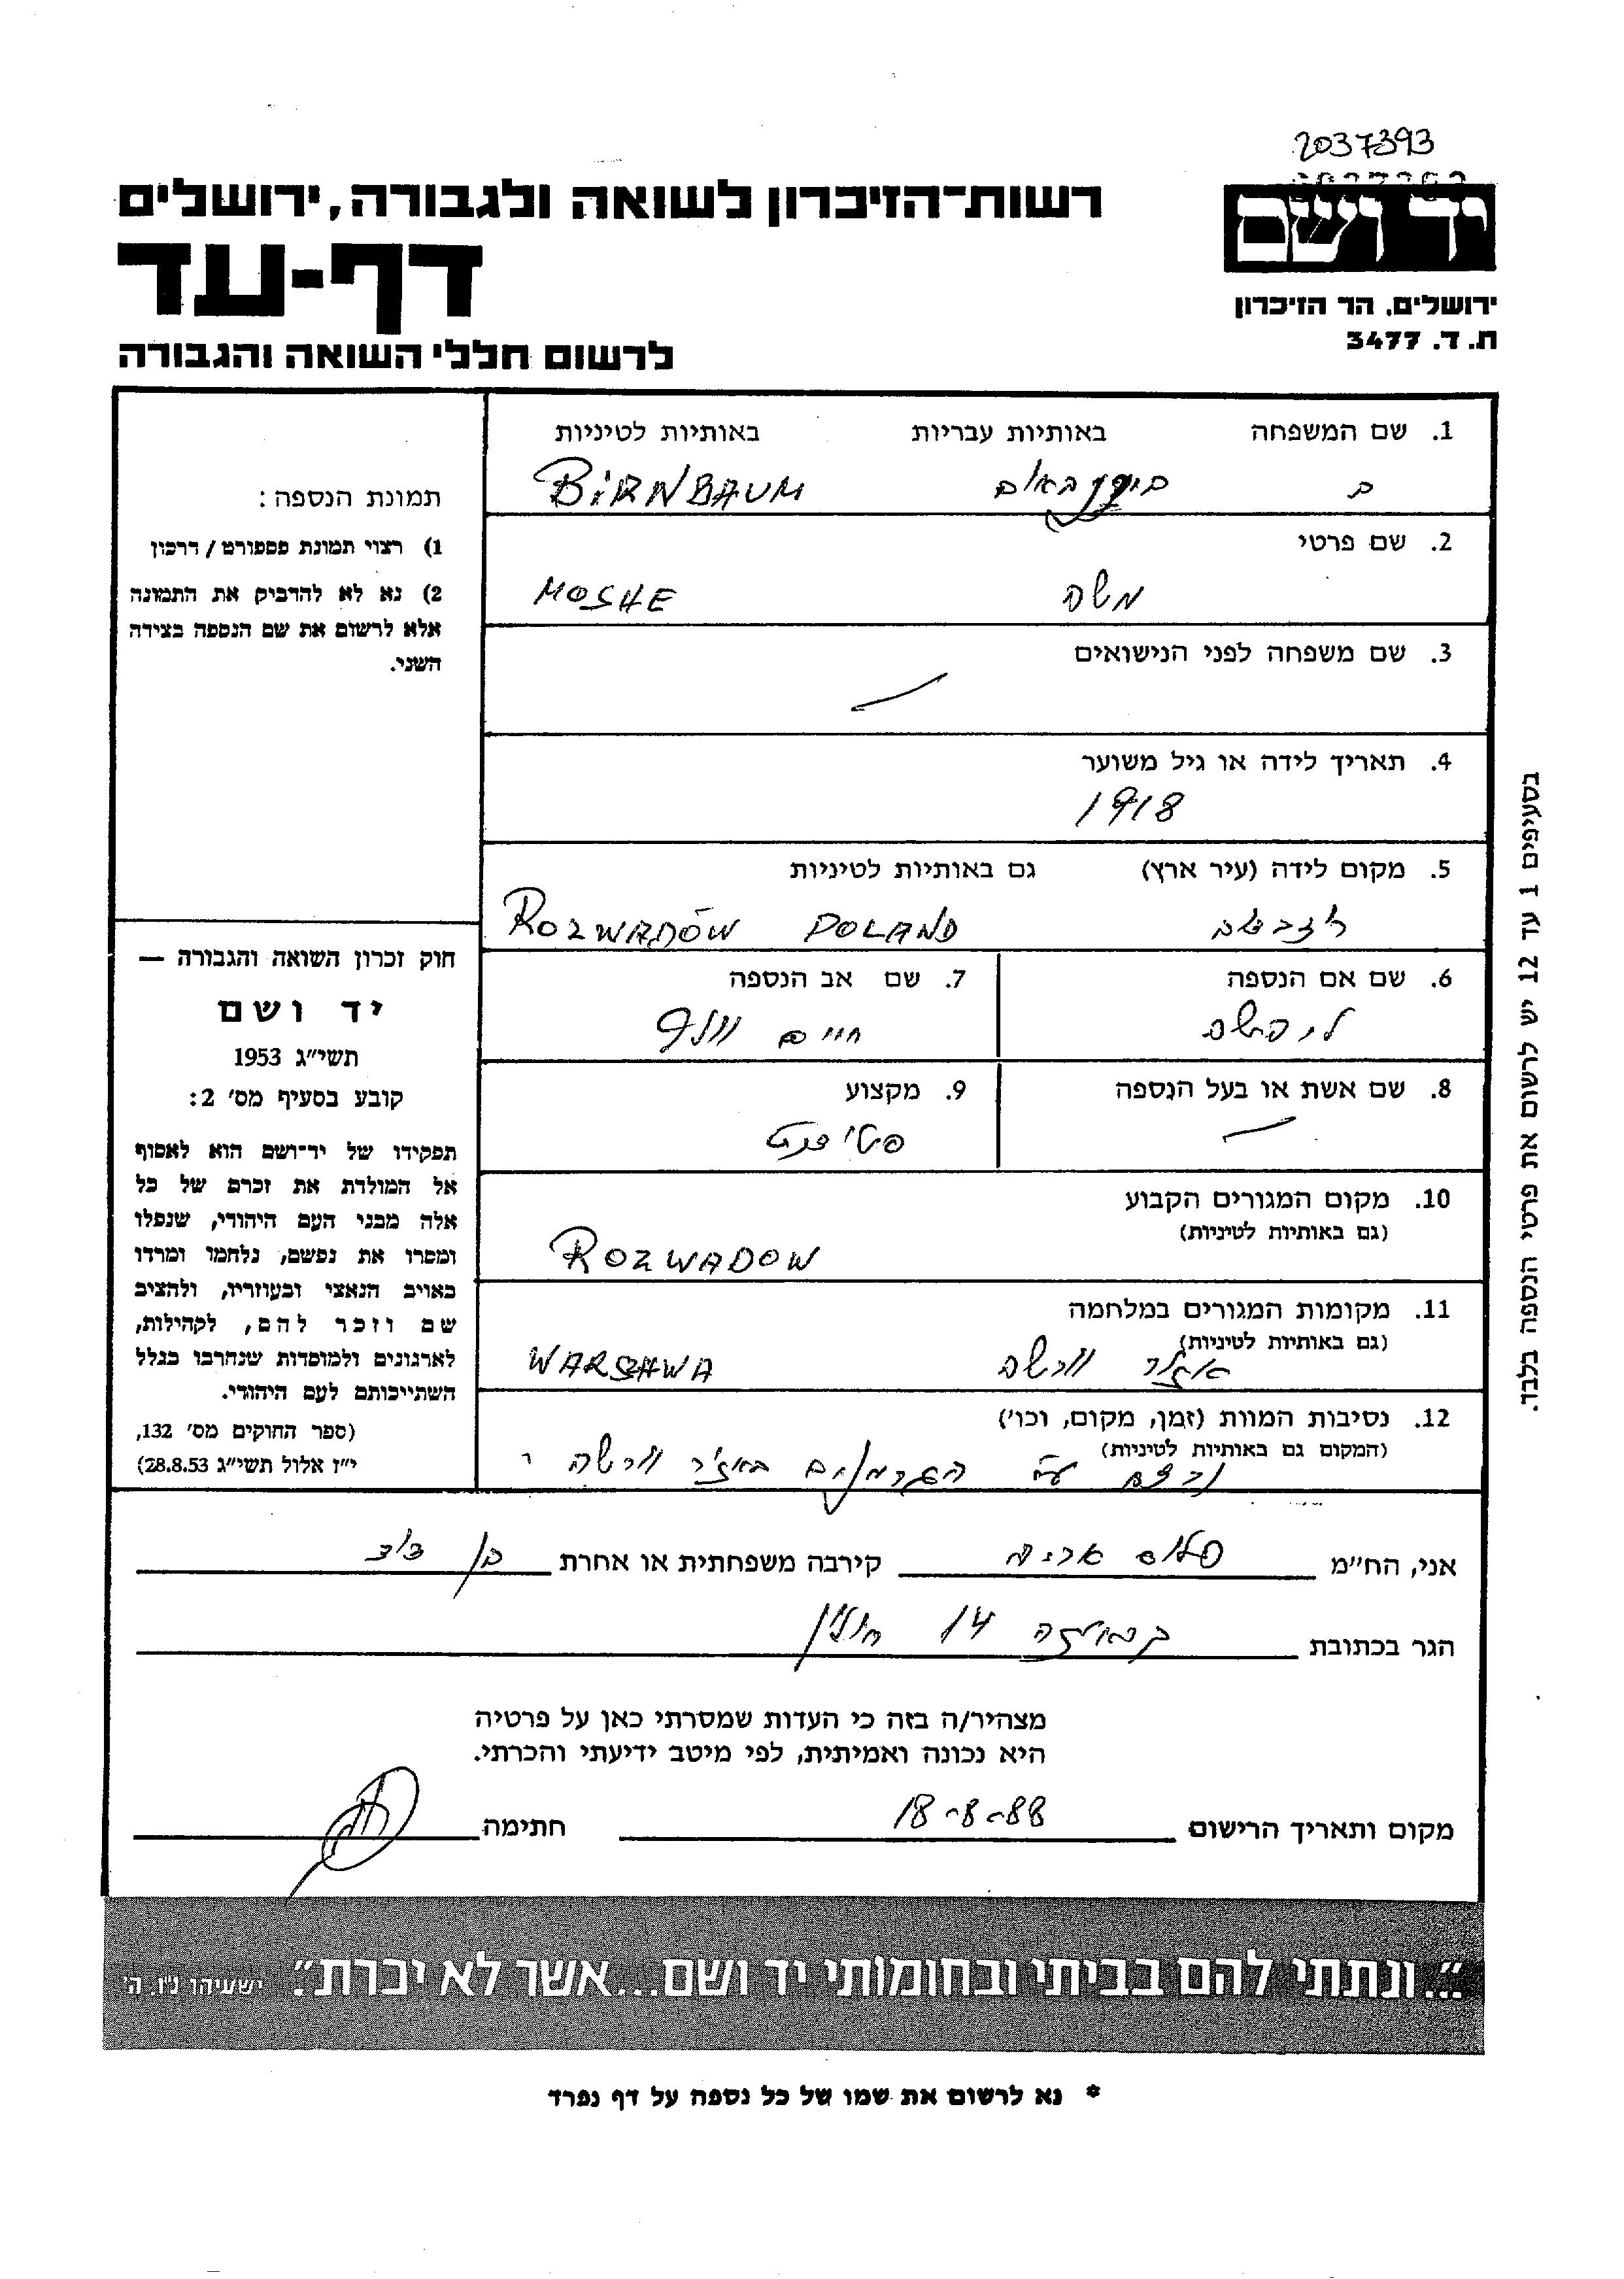 2037393
רשות-הזיכרון לשואה ולגבורה, ירושלים
דף-עד
לרשום חללי השואה והגבורה
יד ושם
ירושלים, הר הזיכרון
ת. ד. 3477
1. שם המשפחה באותיות עבריות באותיות לטיניות
ב בירנבאום BIRNBAUM
2. שם פרטי
משה MOSHE
3. שם משפחה לפני הנישואים
—
4. תאריך לידה או גיל משוער
1918
5. מקום לידה (עיר ארץ) גם באותיות לטיניות
ROZWADÓW POLAND
6. שם אם הנספה
7. שם אב הנספה
חיים וולף
8. שם אשת או בעל הנספה
—
9. מקצוע
סטודנט
10. מקום המגורים הקבוע
(גם באותיות לטיניות)
ROZWADOW
11. מקומות המגורים במלחמה
(גם באותיות לטיניות)
אזור ורשה WARSZAWA
12. נסיבות המוות (זמן, מקום, וכו')
(המקום גם באותיות לטיניות)
נרצח ע"י הגרמנים באזור ורשה
תמונת הנספה:
1) רצוי תמונת פספורט / דרכון
2) נא לא להדביק את התמונה
אלא לרשום את שם הנספה בצידה
השני.
חוק זכרון השואה והגבורה —
יד ושם
תשי"ג 1953
קובע בסעיף מס' 2:
תפקידו של יד-ושם הוא לאסוף
אל המולדת את זכרם של כל
אלה מבני העם היהודי, שנפלו
ומסרו את נפשם, נלחמו ומרדו
באויב הנאצי ובעוזריו, ולהציב
שם וזכר להם, לקהילות,
לארגונים ולמוסדות שנחרבו בגלל
השתייכותם לעם היהודי.
(ספר החוקים מס' 132,
י"ז אלול תשי"ג 28.8.53)
בסעיפים 1 עד 12 יש לרשום את פרטי הנספה בלבד.
אני, הח"מ קירבה משפחתית או אחרת בן דוד
הגר בכתובת 14 חולון
מצהיר/ה בזה כי העדות שמסרתי כאן על פרטיה
היא נכונה ואמיתית, לפי מיטב ידיעתי והכרתי.
מקום ותאריך הרישום 18-8-88 חתימה
"...ונתתי להם בביתי ובחומותי יד ושם...אשר לא יכרת". ישעיהו נ"ו, ה'
* נא לרשום את שמו של כל נספה על דף נפרד